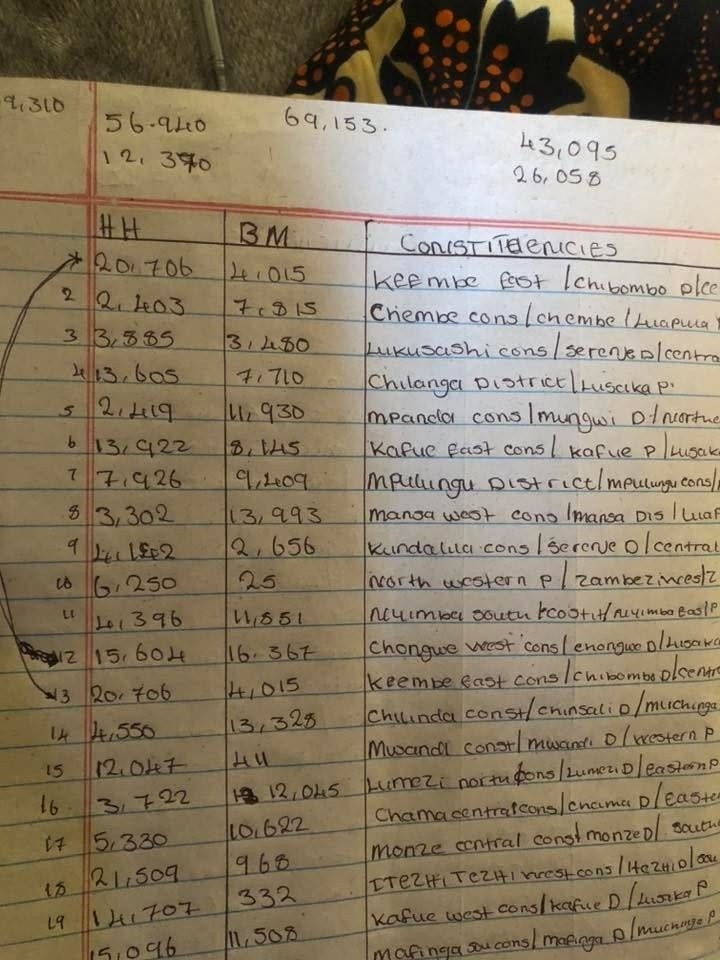 9,310 56.940 69,153. 43,095
12,370 26,058
HH BM CONSTITUENCIES
20,706 4,015 Keembe East /Chibombo D/ce
2 2,403 7,815 Chembe cons/chembe/Luapula
3 3,885 3,480 Lukusashi cons/serenje D/centra
4 13,605 7,710 Chilanga District/Lusaka P.
5 2,419 11,930 mpanda cons/mungwi D/northe
6 13,922 8,145 Kafue East cons/ kafue P/Lusak
7 7,926 9,409 Mpulungu District/mpulungu cons/
8 3,302 13,993 mansa west cons/mansa Dis/Luap
9 2,656 cons/serenje D/central
10 6,250 25 North western P/zambezi west/z
11 4,396 11,851 Nyimba south
12 15,604 16.367 Chongwe west cons/chongwe D/Lusaka
13 20,706 4,015 Keembe east cons/chibombo D/centra
14 4,550 13,328 Chilinda const/chinsali D/muchinga
15 12,047 411 Mwandi const/mwandi D/western P
16 3,722 12,045 Lumezi north cons/Lumezi D/eastern P
17 5,330 10,622 Chama central cons/chama D/Easte
18 21,509 968 Monze central const monze D/ south
19 14,707 332 ITEZHI, TEZHI west cons/ITEZHI, D/sou
15,096 11,508 Kafue west cons/kafue D/Lusaka P
Mafinga sou cons/mafinga D/muchinga P